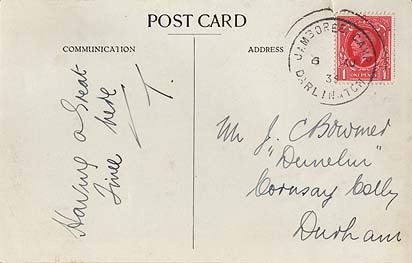 POST CARD
COMMUNICATION
ADDRESS
Having a Great
Time here
T.
JAMBOREE CAMP
6
36
DARLINGTON
1 ONE PENNY 1
Mr J. C Bowmer
"Dunelm"
Cornsay Colly
Durham